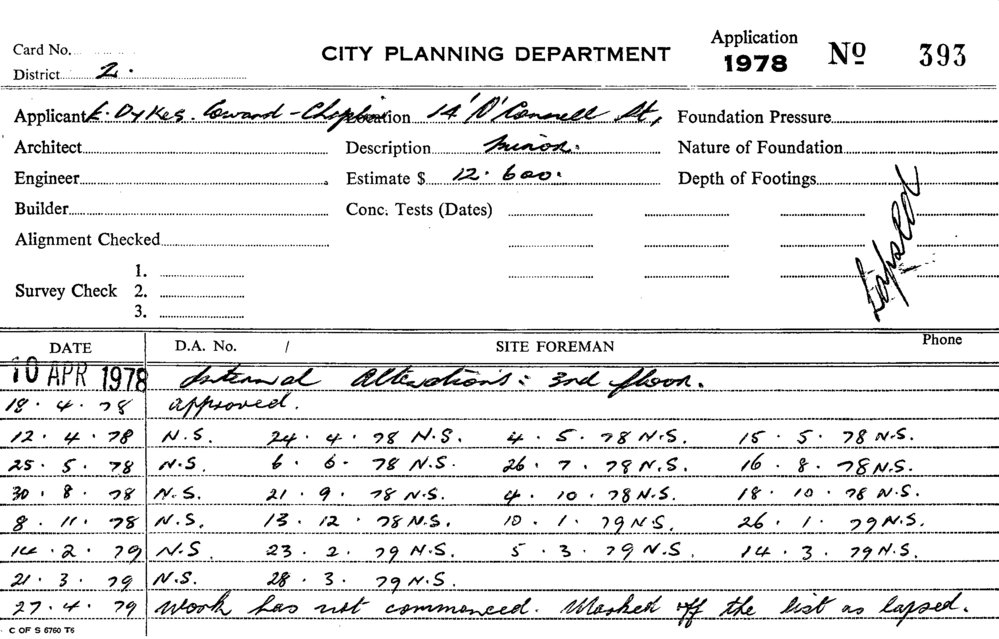 Card No.
CITY PLANNING DEPARTMENT
Application 1978 No 393
District 2.
Applicant E. Dykes. Coward - Chaplin Location 14 O'Connell St, Foundation Pressure
Architect Description minor. Nature of Foundation
Engineer Estimate $ 12.600. Depth of Footings
Builder Conc. Tests (Dates)
Alignment Checked
Lapsed
1.
Survey Check 2.
3.
DATE D.A. No. / SITE FOREMAN Phone
10 APR 1978 Internal Alterations: 3rd floor.
18.4.78 approved.
12.4.78 N.S. 24.4.78 N.S. 4.5.78 N.S. 15.5.78 N.S.
25.5.78 N.S. 6.6.78 N.S. 26.7.78 N.S. 16.8.78 N.S.
30.8.78 N.S. 21.9.78 N.S. 4.10.78 N.S. 18.10.78 N.S.
8.11.78 N.S. 13.12.78 N.S. 10.1.79 N.S. 26.1.79 N.S.
14.2.79 N.S. 23.2.79 N.S. 5.3.79 N.S. 14.3.79 N.S.
21.3.79 N.S. 28.3.79 N.S.
27.4.79 Work has not commenced. Marked off the list as lapsed.
C OF S 6760 T6